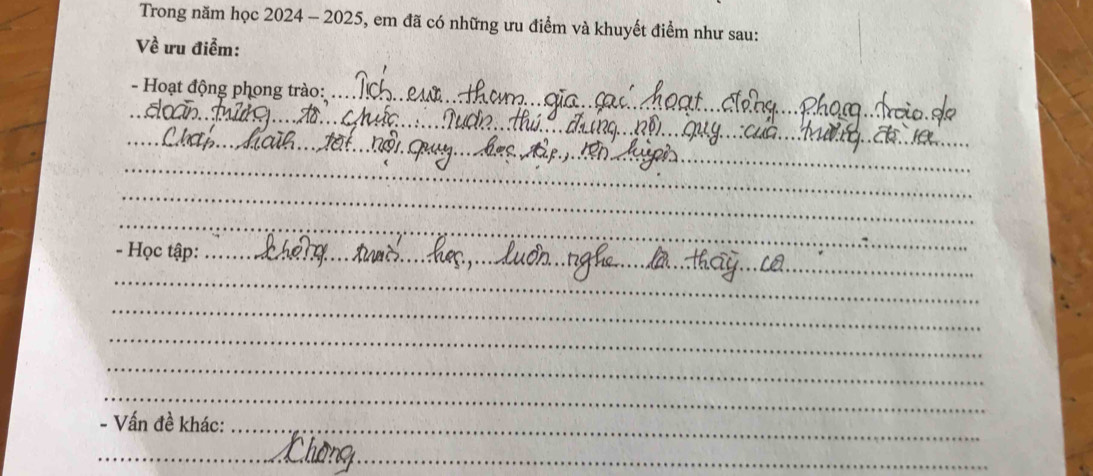 Trong năm học 2024 – 2025, em đã có những ưu điểm và khuyết điểm như sau:
Về ưu điểm:
- Hoạt động phong trào: Tích cực tham gia các hoạt động phong trào do
đoàn trường tổ chức. Tuân thủ đúng nội quy của trường đề ra
Chấp hành tốt nội quy học tập, rèn luyện
- Học tập: không trốn học, luôn nghe lời thầy cô
- Vấn đề khác:
Không